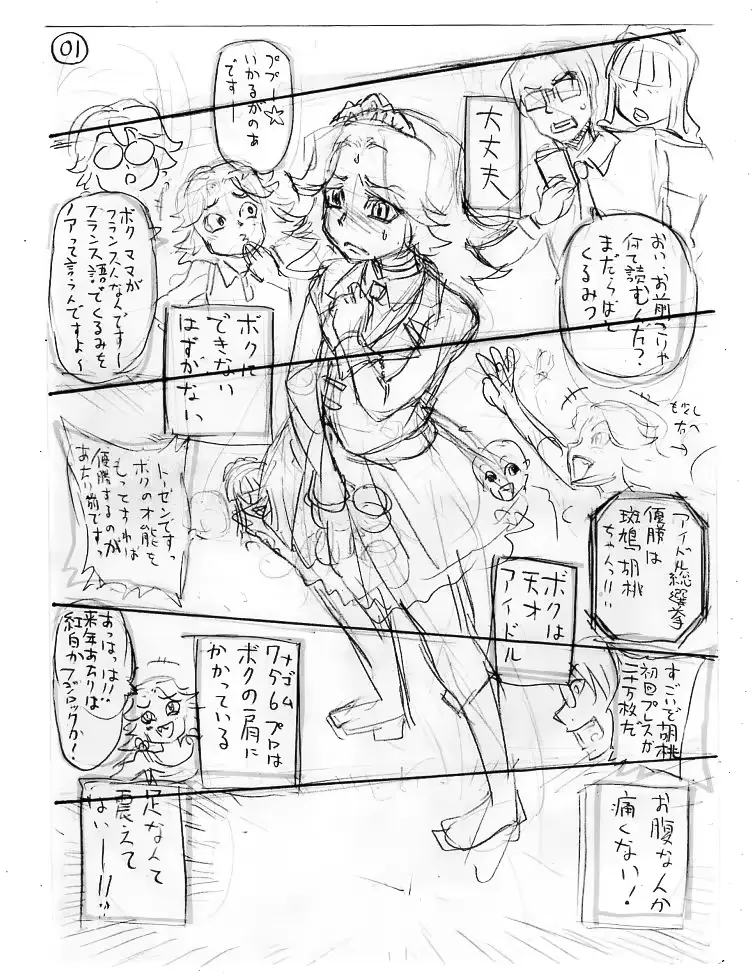 01
大丈夫
おい、お前こりゃ
何て読むんだ？
まだらばと
くるみっ
ププー☆
いかるがのあ
ですー
ボク ママが
フランス人なんですー
フランス語でくるみを
ノアって言うんですよ～
ボクに
できない
はずがない
アイドル総選挙
優勝は
斑鳩胡桃
ちゃんっ!!
トーゼンですっ
ボクの才能を
もってすれば
優勝するのが
あたり前ですっ
ボクは
天才
アイドル
すごいぞ胡桃
初回プレスが
二十万枚だ
ナゴム
765プロは
ボクの肩に
かかっている
おっほっは!!
来年あたりは
紅白か
フジロックか!
お腹なんか
痛くない!
足なんて
震えて
ないー!!